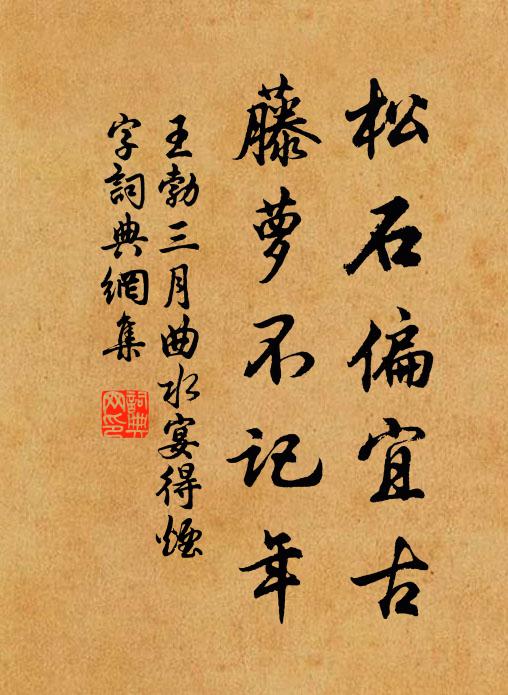 松石偏宜古
藤萝不记年
王勃三月曲水宴得烟
字詞典網集
詞典
网印